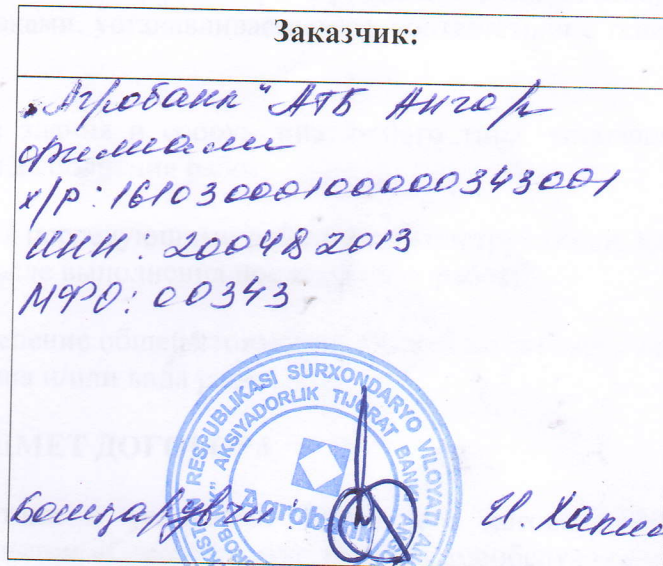 Заказчик:
"Агробанк" АТБ Ангор
филиали
х/р: 16103000100000343001
ИНН: 200482013
МФО: 00343
RESPUBLIKASI SURXONDARYO VILOYATI
AKSIYADORLIK TIJORAT BANKI
Agrobank
Бошқарувчи: И.